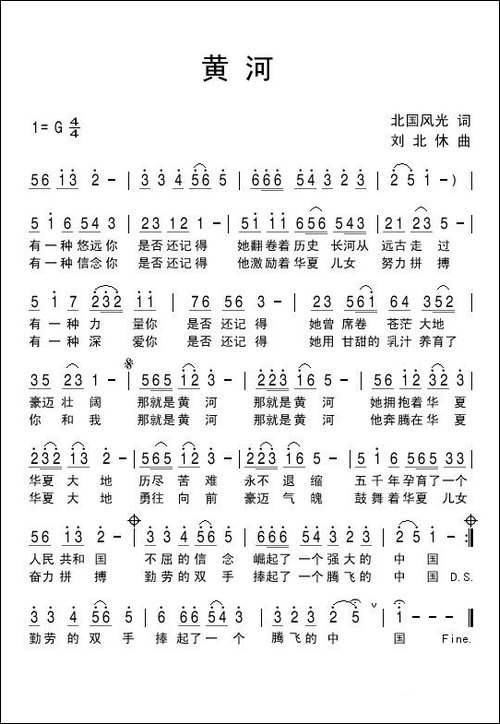 黄河
1=G 4/4
北国风光 词
刘北休 曲
56 13 2 - | 3 3 4 56 5 | 666 54 3 3 | 2 5 1 - )
5 1 6 543 | 23 12 1 - | 51 1 1 656 543 | 21 23 5 -
有一种悠远你 是否还记得 她翻卷着历史 长河从 远古走过
有一种信念你 是否还记得 他激励着华夏 儿女 努力拼搏
5 1 7 232 11 | 76 56 3 - | 23 561 64 352
有一种力 量你 是否还记得 她曾席卷 苍茫大地
有一种深 爱你 是否还记得 她用甘甜的乳汁 养育了
35 23 1 - | 565 12 3 - | 223 16 5 - | 56 12 32 3
豪迈壮阔 那就是黄河 那就是黄河 她拥抱着华夏
你和我 那就是黄河 那就是黄河 他奔腾在华夏
232 12 2 - | 565 12 3 - | 223 16 5 - | 516 656 543
华夏大地 历尽苦难 永不退缩 五千年孕育了一个
华夏大地 勇往向前 豪迈气魄 鼓舞着华夏儿女
56 13 2 - | 3 3 4 56 5 | 666 54 3 3 | 2 5 1 - :||
人民共和国 不屈的信念 崛起了一个强大的 中国
奋力拼搏 勤劳的双手 捧起了一个腾飞的 中国 D.S.
3 3 4 56 5 | 666 54 3 - | 3 3 2 5 5 v | 1 - - - ||
勤劳的双手 捧起了一个 腾飞的中 国 Fine.